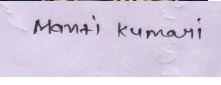 Manti Kumari